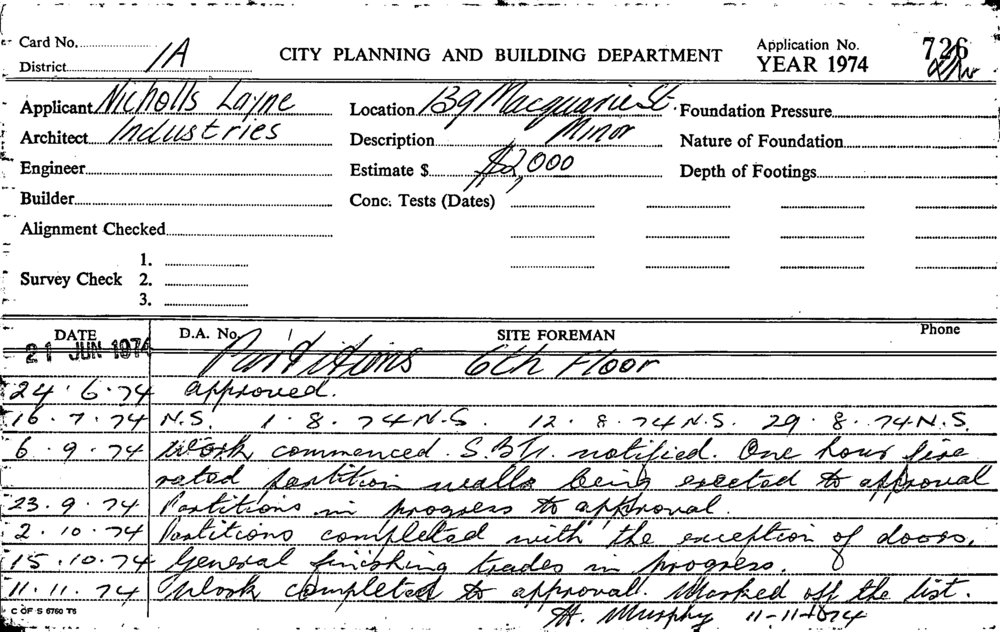 Card No.
District 1A
CITY PLANNING AND BUILDING DEPARTMENT
Application No. 726
YEAR 1974
Applicant Nicholls Layne
Location 139 Macquarie St.
Foundation Pressure
Architect Industries
Description Minor
Nature of Foundation
Engineer
Estimate $ $2,000
Depth of Footings
Builder
Conc. Tests (Dates)
Alignment Checked
1.
Survey Check 2.
3.
DATE D.A. No. SITE FOREMAN Phone
21 JUN 1974 Partitions 6th Floor
24.6.74 approved.
16.7.74 N.S. 1.8.74 N.S. 12.8.74 N.S. 29.8.74 N.S.
6.9.74 Work commenced. notified. One hour fire
rated partition walls being erected to approval
23.9.74 Partitions in progress to approval.
2.10.74 Partitions completed with the exception of doors.
15.10.74 General finishing trades in progress.
11.11.74 Work completed to approval. Marked off the list.
C OF S 6760 TS
H. Murphy 11-11-1974